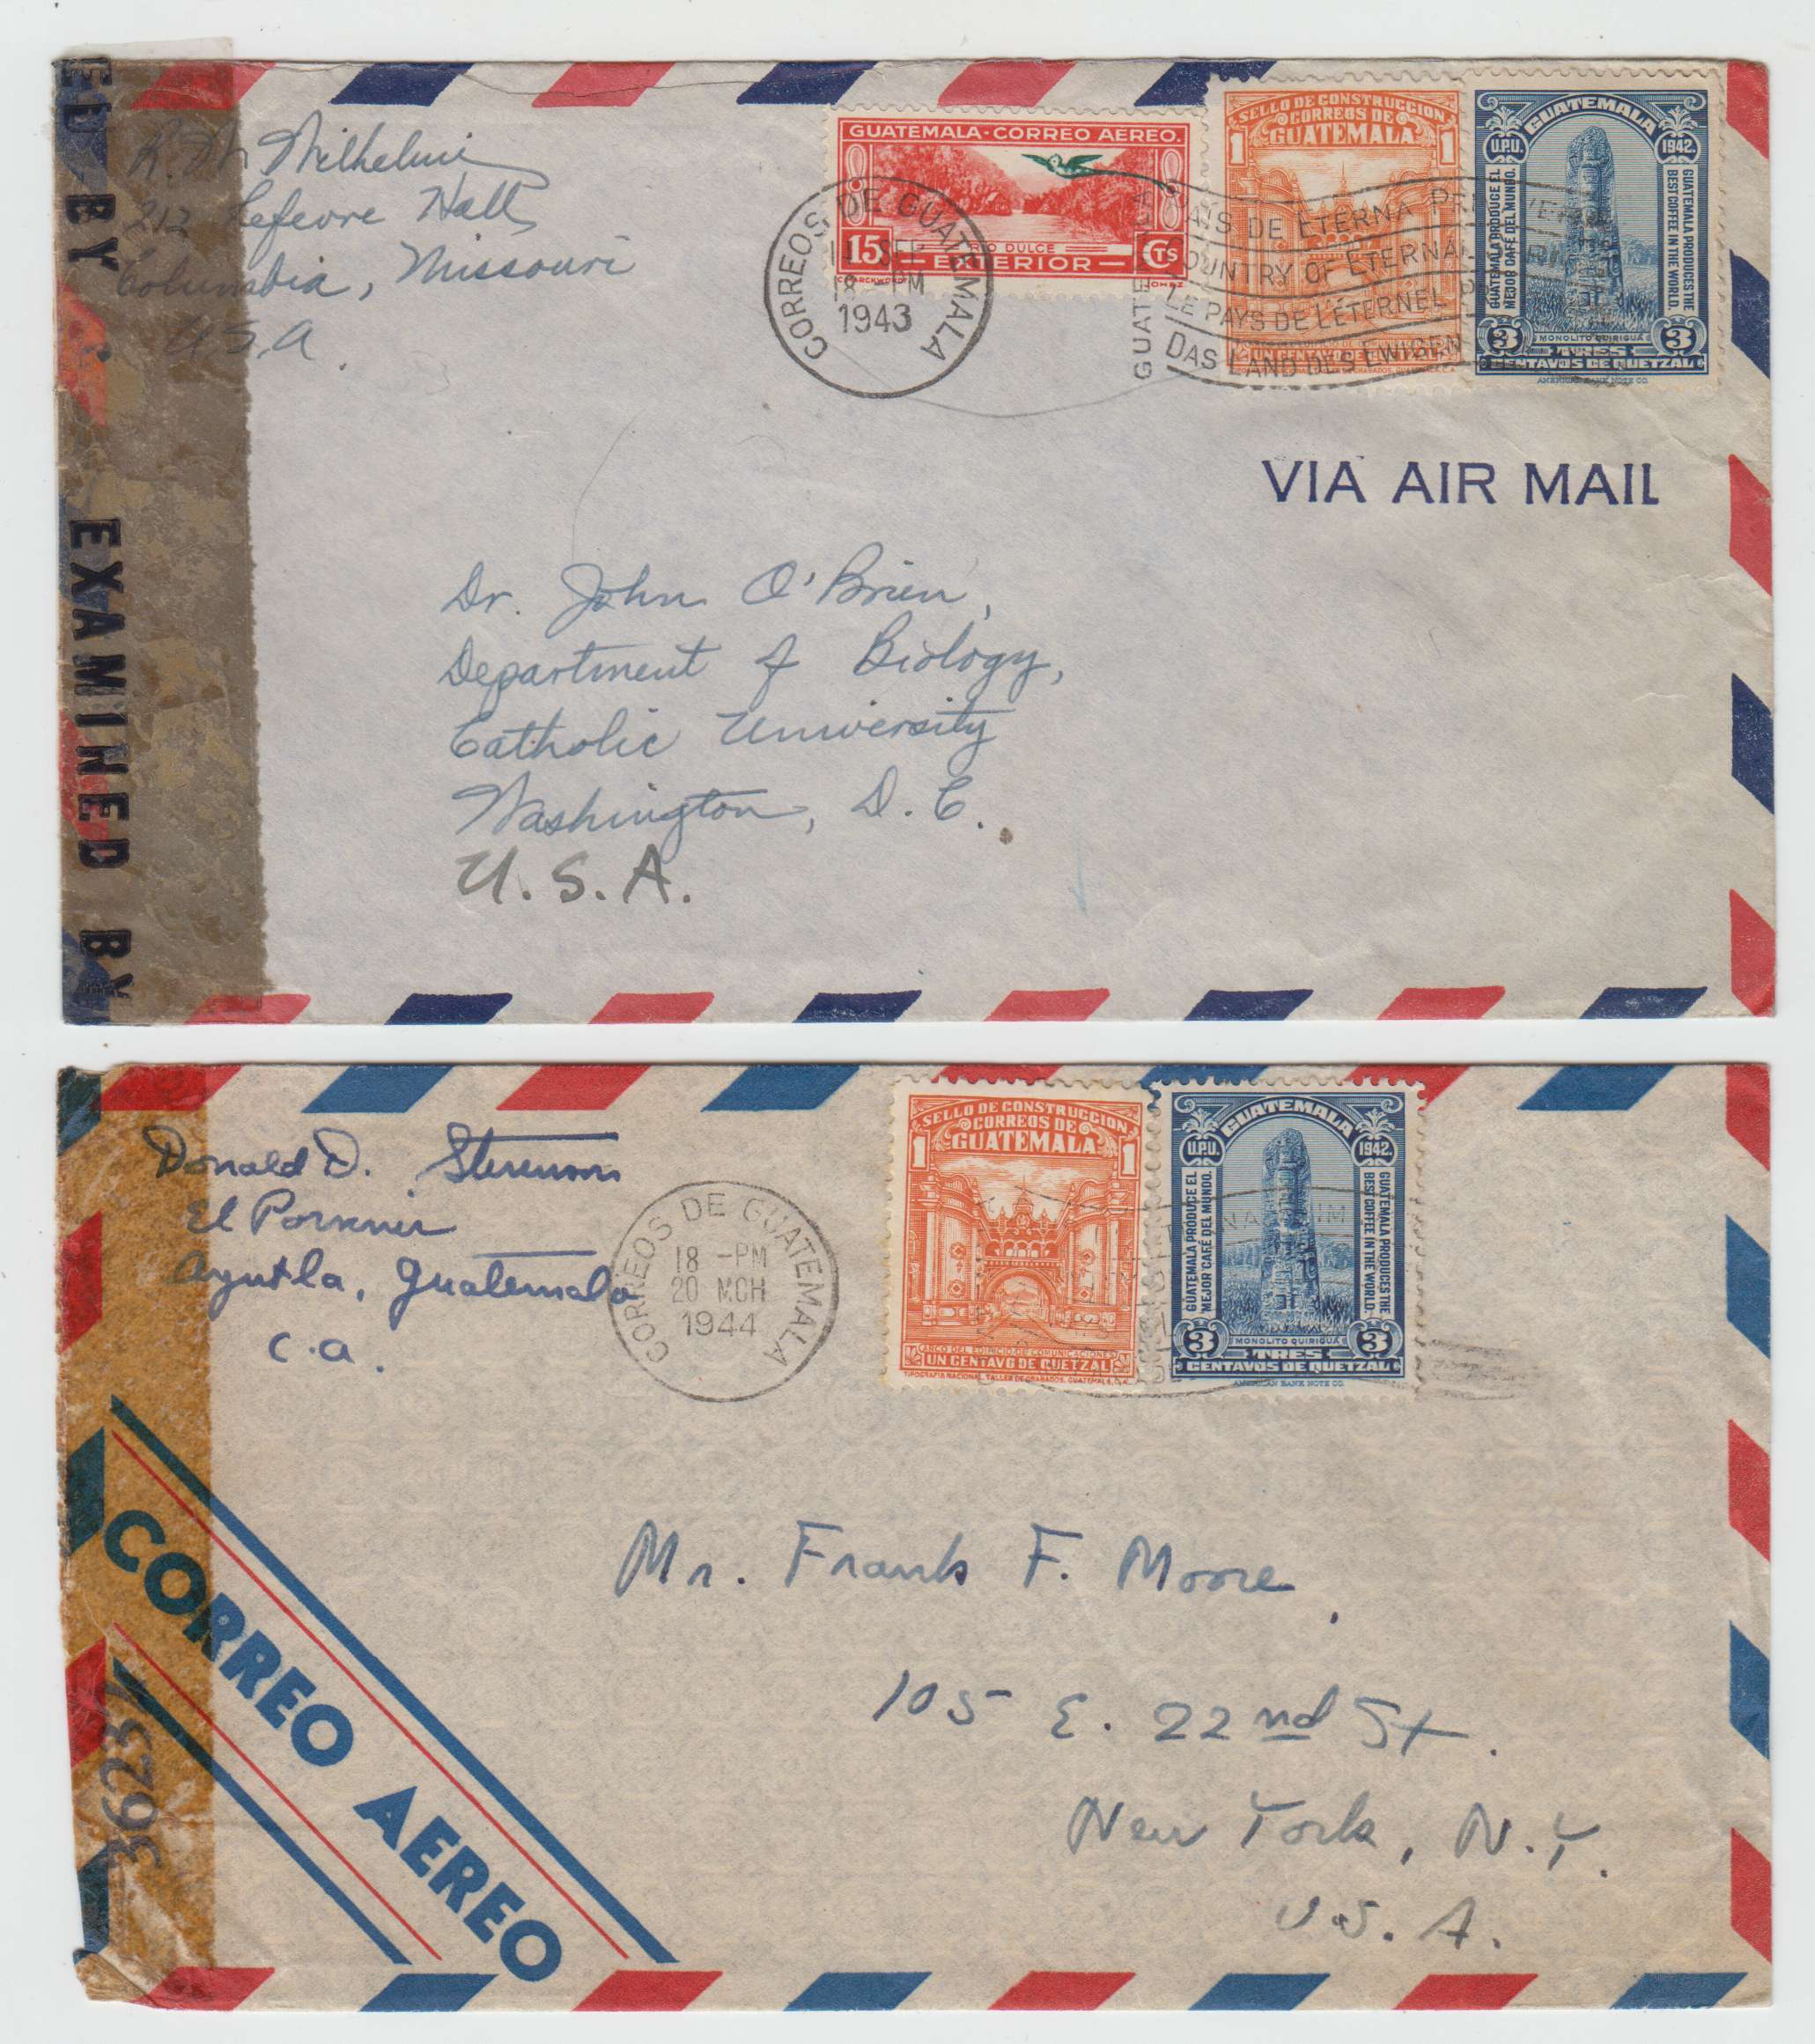 ED BY
EXAMINED BY
R. M. Wilhelm
212 Lefevre Hall
Columbia, Missouri
U.S.A.
GUATEMALA-CORREO AEREO.
15 CTS
RIO DULCE
EXTERIOR
SELLO DE CONSTRUCCION
CORREOS DE
GUATEMALA
1 1
UN CENTAVO DE QUETZAL
GUATEMALA
U.P.U. 1942.
GUATEMALA PRODUCE EL
MEJOR CAFÉ DEL MUNDO.
GUATEMALA PRODUCES THE
BEST COFFEE IN THE WORLD.
MONOLITO QUIRIGUÁ
3 TRES 3
CENTAVOS DE QUETZAL
AMERICAN BANK NOTE CO.
CORREOS DE GUATEMALA
SEP
18 -PM
1943
PAIS DE ETERNA
COUNTRY OF ETERNAL
LE PAYS DE L'ETERNEL
DAS LAND DES EWIGEN
VIA AIR MAIL
Dr. John O'Brien,
Department of Biology,
Catholic University
Washington, D.C.
U.S.A.
Donald D.
Ayutla, Guatemala
C.A.
CORREOS DE GUATEMALA
18 -PM
20 MCH
1944
SELLO DE CONSTRUCCION
CORREOS DE
GUATEMALA
1 1
ARCO DEL EDIFICIO DE COMUNICACIONES
UN CENTAVO DE QUETZAL
TIPOGRAFIA NACIONAL, TALLER DE GRABADOS, GUATEMALA, C.A.
GUATEMALA
U.P.U. 1942.
GUATEMALA PRODUCE EL
MEJOR CAFÉ DEL MUNDO.
GUATEMALA PRODUCES THE
BEST COFFEE IN THE WORLD.
MONOLITO QUIRIGUÁ
3 TRES 3
CENTAVOS DE QUETZAL
AMERICAN BANK NOTE CO.
CORREO AEREO
Mr. Frank F. Moore
105 E. 22nd St.
New York, N.Y.
U.S.A.